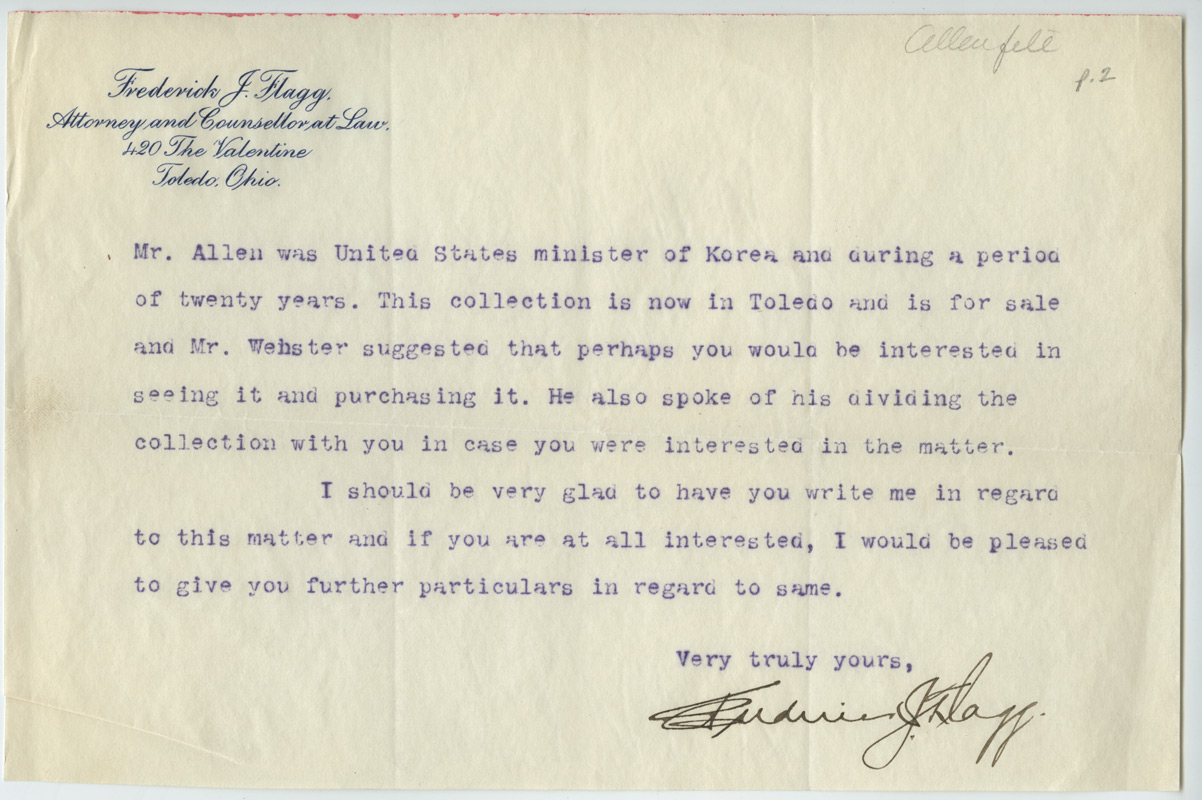 Allen file
p. 2
Frederick J. Flagg,
Attorney and Counsellor at Law,
420 The Valentine
Toledo, Ohio.
Mr. Allen was United States minister of Korea and during a period
of twenty years. This collection is now in Toledo and is for sale
and Mr. Webster suggested that perhaps you would be interested in
seeing it and purchasing it. He also spoke of his dividing the
collection with you in case you were interested in the matter.
I should be very glad to have you write me in regard
to this matter and if you are at all interested, I would be pleased
to give you further particulars in regard to same.
Very truly yours,
Frederick J. Flagg.